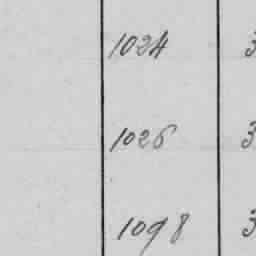 1024 3
1026 3
1098 3